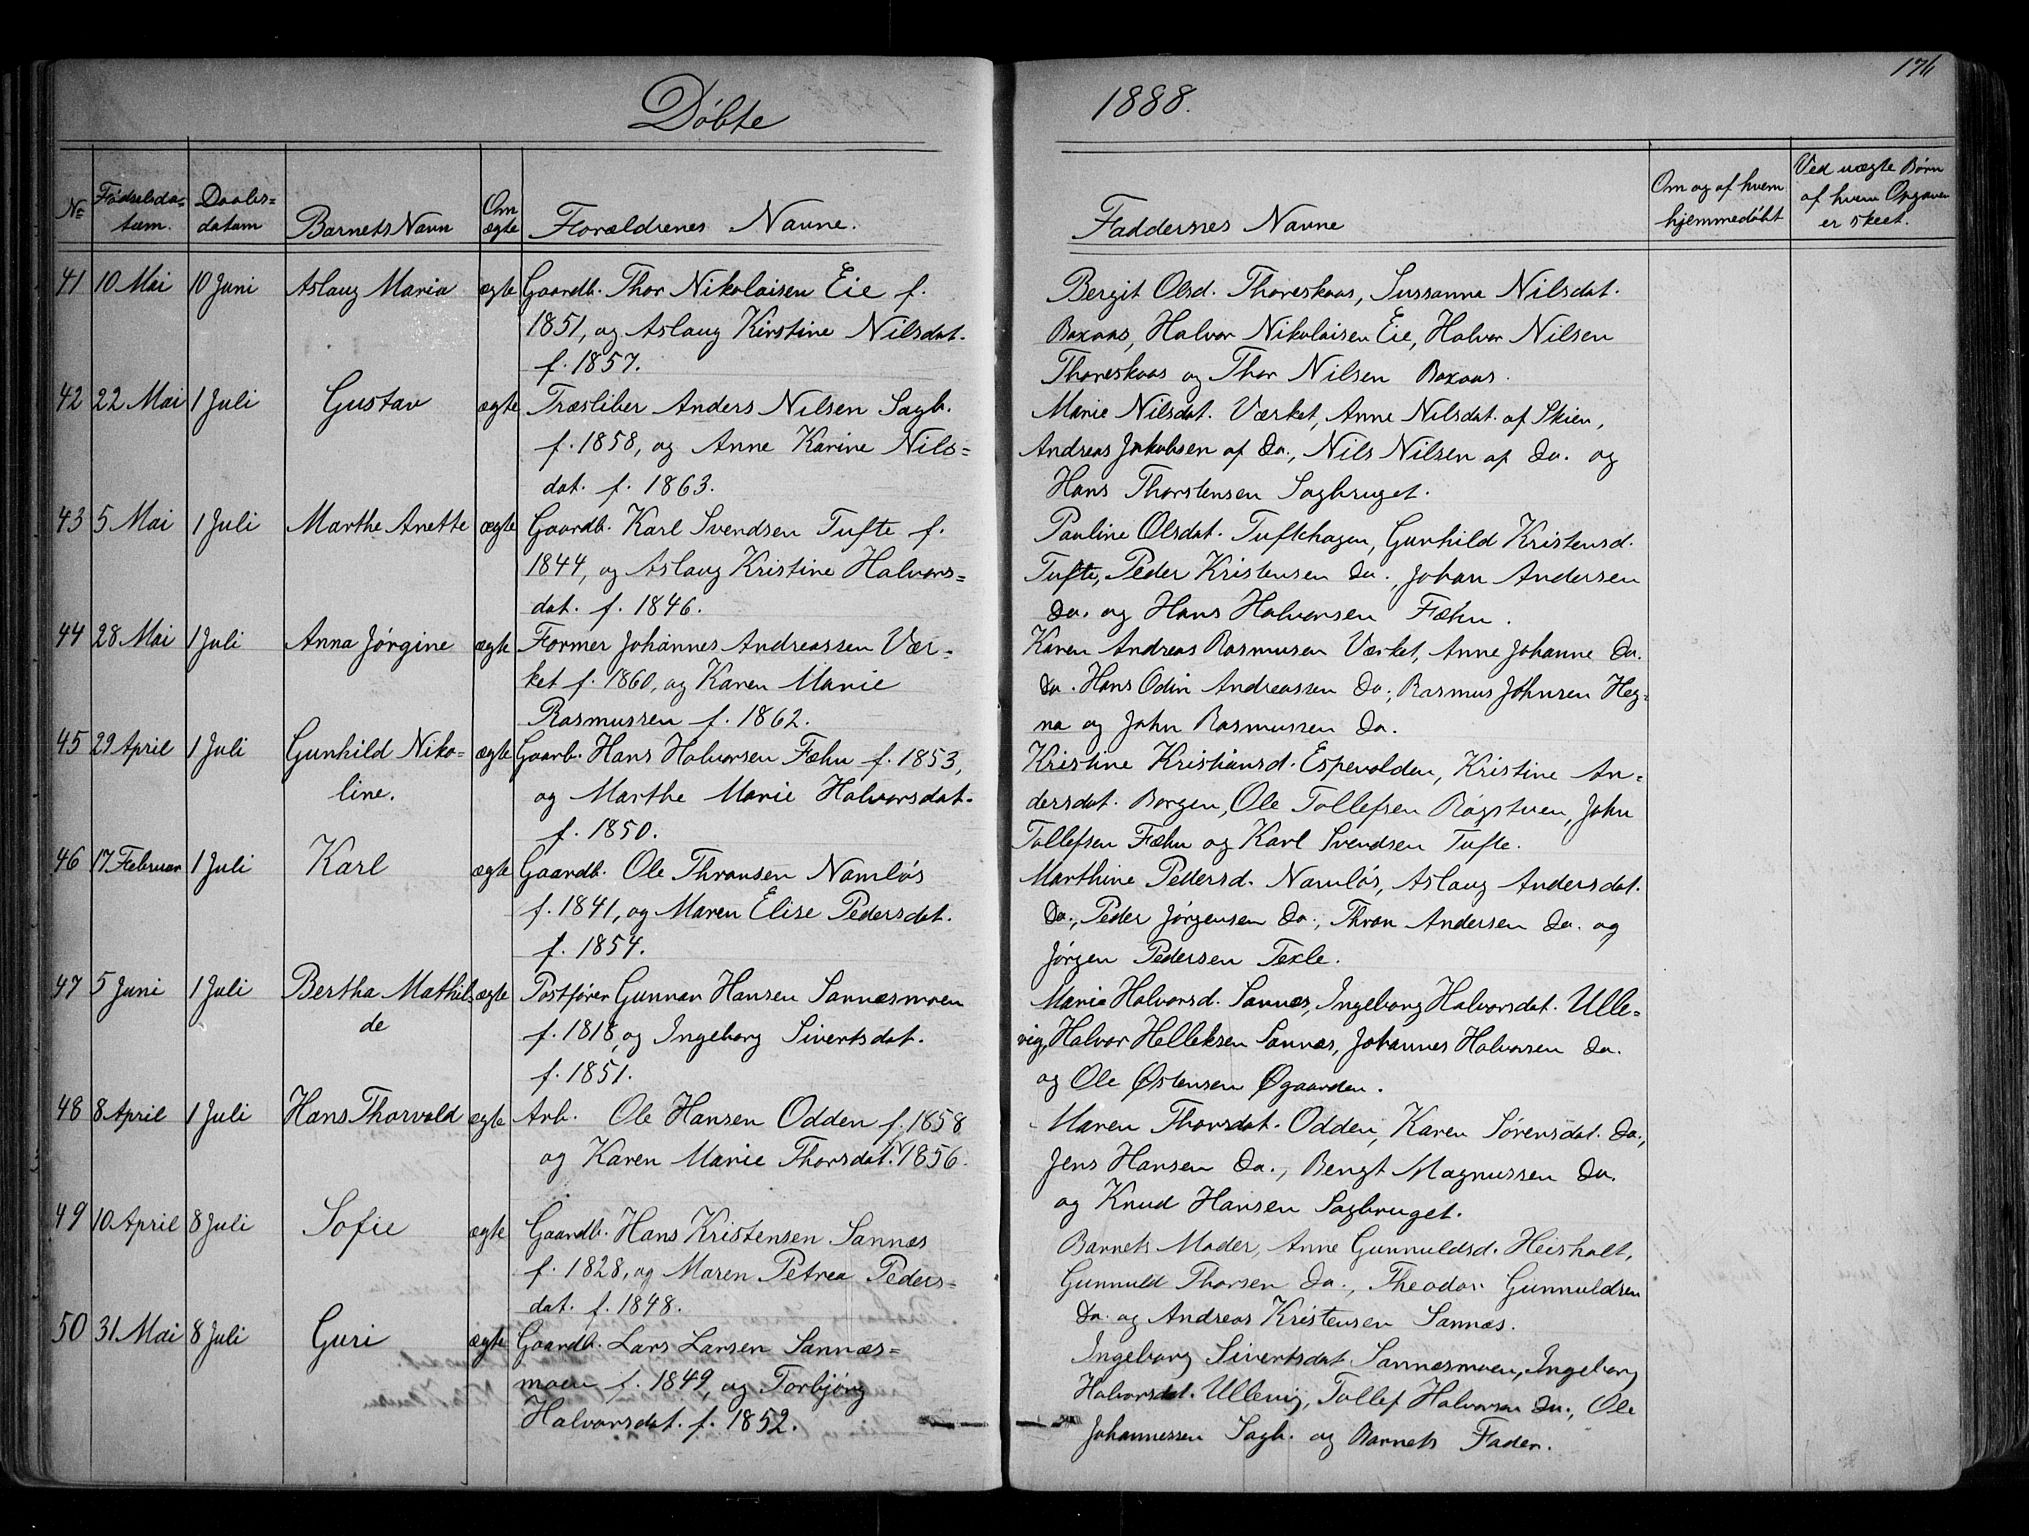 Døbte
1888.
176
No
Fødselsda=
tum.
Daabs=
datum
Barnets Navn
Om
ægte
Forældrenes Navne.
Faddernes Navne
Om og af hvem
hjemmedøbt
Ved uægte Børn
af hvem Opgaven
er skeet.
41 10 Mai 10 Juni Aslaug Maria ægte Gaardb. Thor Nikolaisen Eie f.
1851, og Aslaug Kirstine Nilsdat.
f. 1857.
Bergit Olsd. Thoreskaas, Sussanne Nilsdat.
Boxaas, Halvor Nikolaisen Eie, Halvor Nilsen
Thoreskaas og Thor Nilsen Boxaas.
42 22 Mai 1 Juli Gustav ægte Træsliber Anders Nilsen Sagb.
f. 1858, og Anne Karine Nils=
dat. f. 1863.
Marie Nilsdat. Værket, Anne Nilsdat. af Skien,
Andreas Jakobsen af Do., Nils Nilsen af Do. og
Hans Thorstensen Sagbruget.
43 5 Mai 1 Juli Marthe Anette ægte Gaardb. Karl Svendsen Tufte f.
1844, og Aslaug Kristine Halvors=
dat. f. 1846.
Pauline Olsdat. Tuftehagen, Gunhild Kristensd.
Tufte, Peder Kristensen Do., Johan Andersen
Do. og Hans Halvorsen Fæhn.
44 28 Mai 1 Juli Anna Jørgine ægte Former Johannes Andreassen Vær=
ket f. 1860, og Karen Marie
Rasmussen f. 1862.
Karen Andreas Rasmusen Værket, Anne Johanne Do.
Do. Hans Odin Andreassen Do., Rasmus Johnsen Heg=
na og John Rasmussen Do.
45 29 April 1 Juli Gunhild Niko=
line. ægte Gaarb. Hans Halvorsen Fæhn f. 1853,
og Marthe Marie Halvorsdat.
f. 1850.
Kristine Kristiansd. Espevolden, Kristine An=
dersdat. Borgen, Ole Tollefsen Røgstuen, John
Tollefsen Fæhn og Karl Svendsen Tufte.
46 17 Februar 1 Juli Karl ægte Gaardb. Ole Thronsen Namløs
f. 1841, og Maren Elise Pedersdat.
f. 1854.
Marthine Pedersd. Namløs, Aslaug Andersdat.
Do., Peder Jørgensen Do., Thron Andersen Do. og
Jørgen Pedersen Texle.
47 5 Juni 1 Juli Bertha Mathil=
de ægte Postfører Gunnar Hansen Sannæsmoen
f. 1818, og Ingeborg Sivertsdat.
f. 1851.
Marie Halvorsd. Sannæs, Ingeborg Halvorsdat. Ulle=
vig, Halvor Helleksen Sannæs, Johannes Halvorsen Do.
og Ole Østensen Øgaarden.
48 8 April 1 Juli Hans Thorvald ægte Arb. Ole Hansen Odden f. 1858
og Karen Marie Thorsdat. 1856.
Maren Thorsdat. Odden, Karen Sørensdat. Do.,
Jens Hansen Do., Bengt Magnussen Do.
og Knud Hansen Sagbruget.
49 10 April 8 Juli Sofie ægte Gaardb. Hans Kristensen Sannæs
f. 1828, og Maren Petrea Peders=
dat. f. 1848.
Barnets Moder, Anne Gunnuldsd. Heisholt,
Gunnuld Thorsen Do., Theodor Gunnuldsen
Do. og Andreas Kristensen Sannæs.
50 31 Mai 8 Juli Guri ægte Gaardb. Lars Larsen Sannæs=
moen f. 1849, og Torbjørg
Halvorsdat. f. 1852.
Ingeborg Sivertsdat. Sannæsmoen, Ingeborg
Halvorsdat. Ullevig, Tollef Halvorsen Do., Ole
Johannessen Sagb. og Barnets Fader.